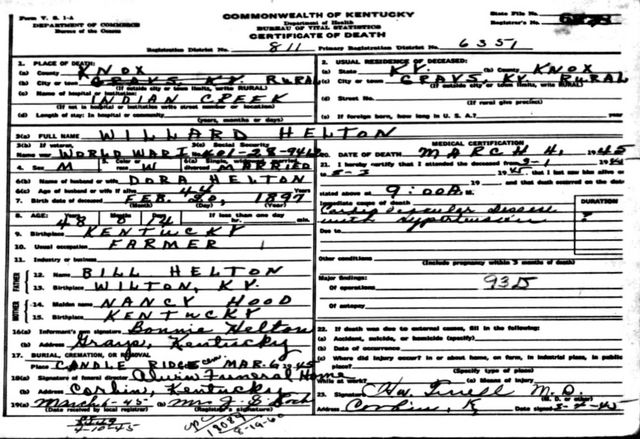 Form V. S. 1-A
DEPARTMENT OF COMMERCE
Bureau of the Census
COMMONWEALTH OF KENTUCKY
Department of Health
BUREAU OF VITAL STATISTICS
CERTIFICATE OF DEATH
State File No.
Registrar's No.
Registration District No. 811 Primary Registration District No. 6351
1. PLACE OF DEATH:
(a) County KNOX
(b) City or town GRAYS, KY. RURAL
(If outside city or town limits, write RURAL)
(c) Name of hospital or institution:
INDIAN CREEK
(If not in hospital or institution write street number or location)
(d) Length of stay: In hospital or community
(years, months or days)
2. USUAL RESIDENCE OF DECEASED:
(a) State KY. (b) County KNOX
(c) City or town GRAYS, KY. RURAL
(If outside city or town limits, write RURAL)
(d) Street No.
(If rural give precinct)
(e) If foreign born, how long in U. S. A.? years
3(a) FULL NAME WILLARD HELTON
3(b) If veteran, 3(c) Social Security
Name war WORLD WAR I No.
4. Sex M 5. Color or race W 6(a) Single, widowed, married, divorced MARRIED
6(b) Name of husband or wife DORA HELTON
6(c) Age of husband or wife if alive 44 Years
7. Birth date of deceased FEB. 20, 1897
(Month) (Day) (Year)
8. AGE: 48 0 14 If less than one day
hr. min.
9. Birthplace KENTUCKY
10. Usual occupation FARMER
11. Industry or business
FATHER
12. Name BILL HELTON
13. Birthplace WILTON, KY.
MOTHER
14. Maiden name NANCY HOOD
15. Birthplace KENTUCKY
16(a) Informant's own signature Bonnie Helton
(b) Address Grays, Kentucky
17. BURIAL, CREMATION, OR REMOVAL
Place CANDLE RIDGE Cem MAR. 6 1945
18(a) Signature of funeral director Funeral Home
(b) Address Corbin, Kentucky
19(a) March 6-45 (b) Mrs.
(Date received by local registrar) (Registrar's signature)
4-10-45
8-19-60
MEDICAL CERTIFICATION
20. DATE OF DEATH MARCH 4, 1945
21. I hereby certify that I attended the deceased from 2-1 19
8-3 1945, that I last saw him alive on
19 , and that death occurred on the date
stated above at 9:00A M.
Immediate cause of death DURATION
Cardio Vascular Disease ?
with Hypertension
Due to
Other conditions (Include pregnancy within 3 months of death)
Major findings:
Of operations 93D
Of autopsy
22. If death was due to external causes, fill in the following:
(a) Accident, suicide, or homicide (specify)
(b) Date of occurrence
(c) Where did injury occur? in or about home, on farm, in industrial place, in public
place?
(Specify type of place)
While at work? (e) Means of injury
23. Signature M.D.
(M. D. or other)
Address Corbin, K Date signed